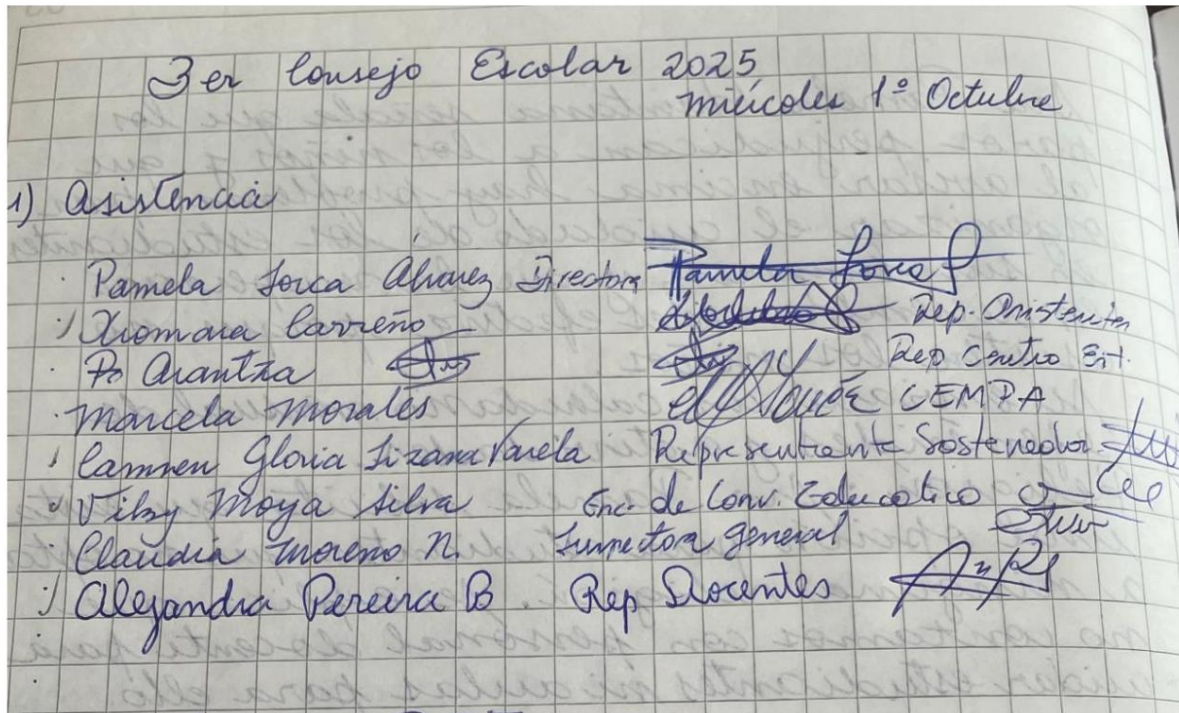 3er Consejo Escolar 2025
miércoles 1º Octubre
1) Asistencia
· Pamela Lorca Alvarez Directora Pamela Lorca
· Xiomara Carreño Rep. Asistentes
· Arantxa Rep Centro Est.
· Marcela Morales CEMPA
· Carmen Gloria Lizana Varela Representante Sostenedor
· Vilsy Moya Silva Enc. de Conv. Educativo
· Claudia Moreno N. Inspectora General
· Alejandra Pereira B Rep Docentes